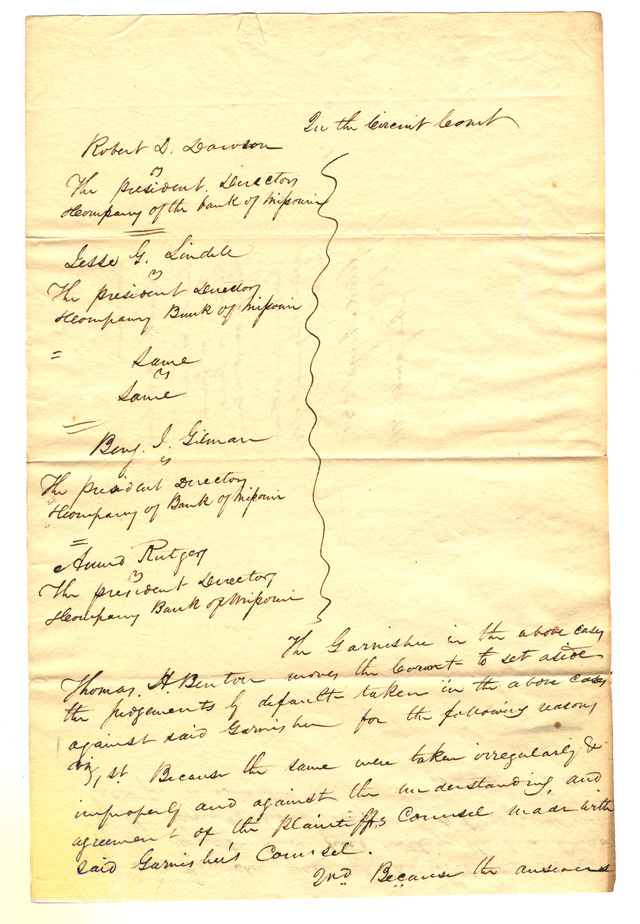 In the Circuit Court
Robert D. Dawson
vs
The president. Directors
& Company of the bank of Missouri
Jesse G. Lindell
vs
The president Directors
& Company Bank of Missouri
=
Same
vs
Same
=
Benj. I. Gilman
vs
The president Directors
& Company of Bank of Missouri
=
Arund Rutgers
vs
The president Directors
& Company Bank of Missouri
The Garnishee in the above cases
Thomas. H. Benton moves the Court to set aside
the judgements by default taken in the above cases
against said Garnishee for the following reasons
viz, 1st. Because the same were taken irregularly &
improperly and against the understanding, and
agreement of the Plaintiffs Counsel made with
said Garnishee's Counsel.
2nd Because the answers